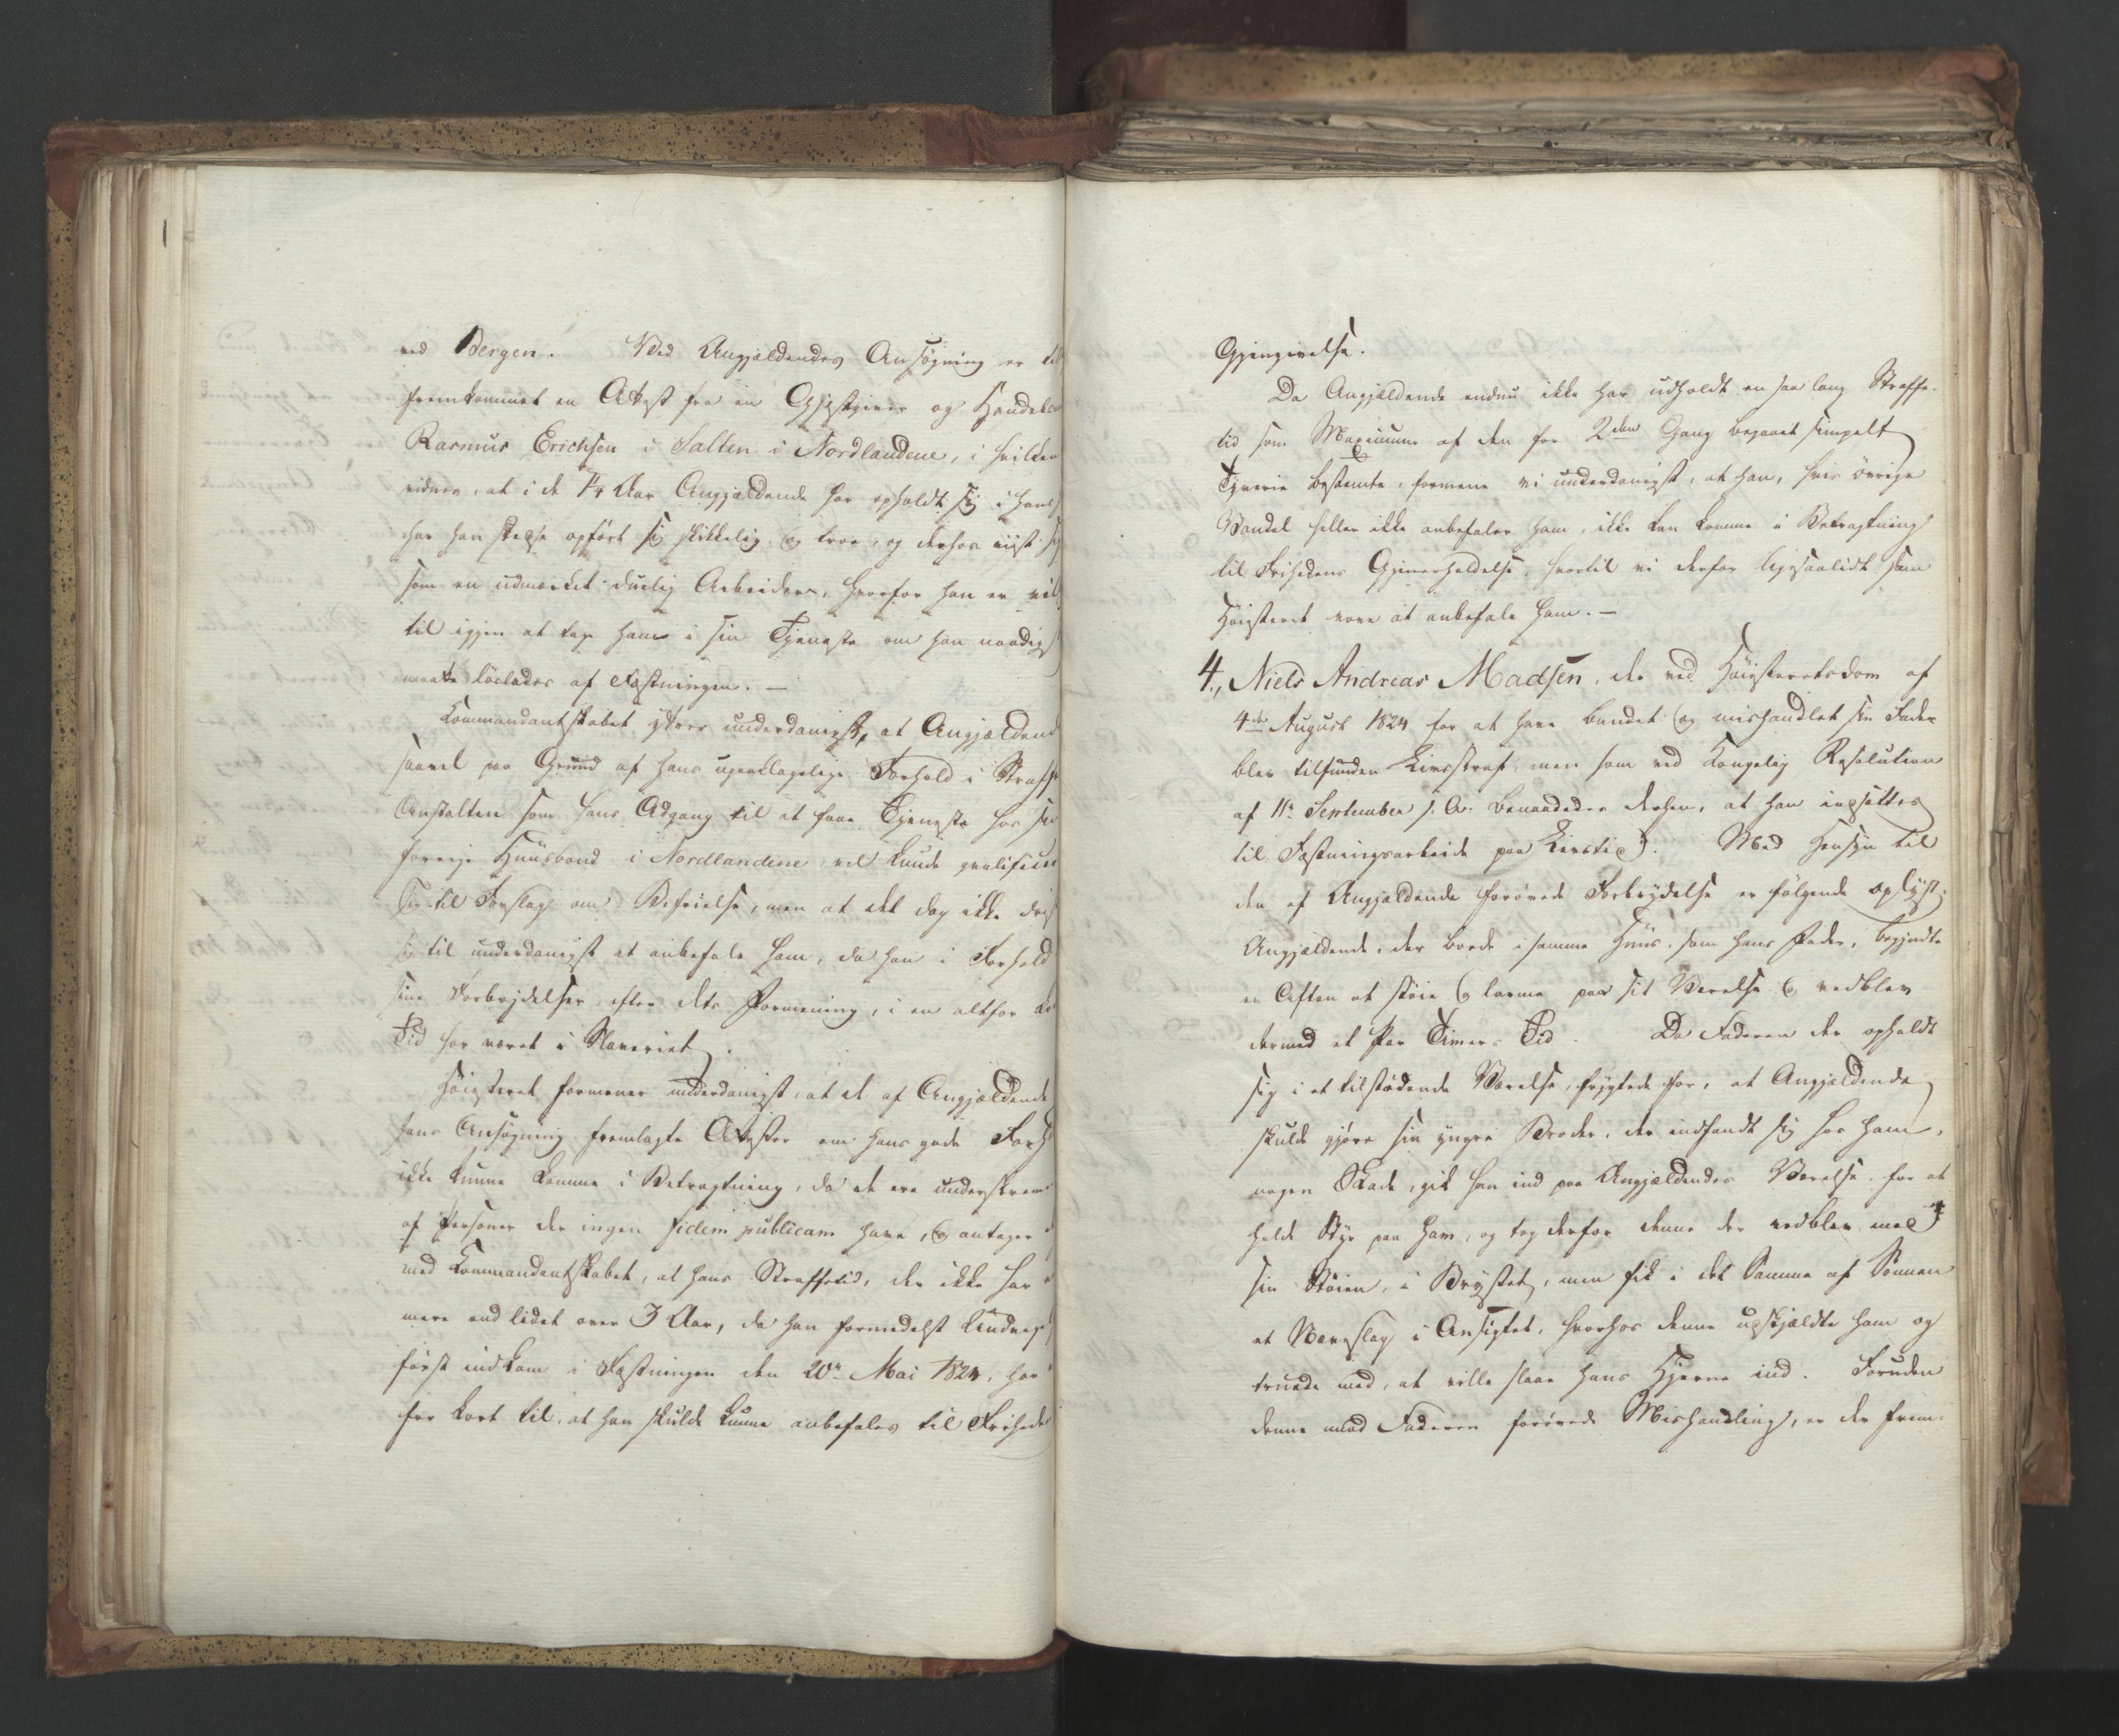 ved Bergen. Ved Angjældendes Ansøgning er til
fremkommet en Attest fra en Gjestgiver og Handels
Rasmus Erichsen i Salten i Nordlandene, i hvilken
vidnes, at i de 1¼ Aar Angjældende har opholdt sig i hans
har han stedse opført sig skikkelig og troe, og derhos viist sig
som en udmærket duelig Arbeider, hvorfor han er vil
til igjen at tage ham i sin Tjeneste om han naadigst
maatte løslades af Fæstningen. —
Kommandantskabet yttrer underdanigst, at Angjældend
saavel paa Grund af hans upaaklagelige Forhold i Straffe
Anstalten som hans Adgang til at faae Tjeneste hos sin
forrige Huusbond i Nordlandene vel kunde qvalificere
sig til Forslag om Befrielse, men at det dog ikke drister
sig til underdanigst at anbefale ham, da han i Forhold
sine Forbrydelser, efter dets Formening, i en altfor kort
Tid har været i Slaveriet.
Høiesteret formener underdanigst, at de af Angjældende
hans Ansøgning fremlagte Attester om hans gode Forh
ikke kunne komme i Betragtning, da de ere underskrevne
af Personer der ingen fidem publicam have, og antager
med Kommandantskabet, at hans Straffetid, der ikke har
mere end lidet over 3 Aar, da han formedelst Undvigelse
først indkom i Fæstningen den 20de Mai 1824, har
for kort til, at han skulde kunne anbefales til Friheds
Gjengivelse.
Da Angjældende endnu ikke har udholdt en saa lang Straffe-
tid som Maximum af den for 2den Gang begaaet simpelt
Tyverie bestemte, formene vi underdanigst, at han, hvis øvrige
Vandel heller ikke anbefaler ham, ikke kan komme i Betragtning
til Frihedens Gjenerholdelse, hvortil vi derfor ligesaalidt som
Høiesteret vove at anbefale ham. —
4., Niels Andreas Madsen, der ved Høiesteretsdom af
4de August 1824 for at have bandet og mishandlet sin Fader
blev tilfunden Livsstraf, men som ved Kongelig Resolution
af 11te September s. A. benaadedes derhen, at han insættes
til Fæstningsarbeide paa Livstid. Med Hensyn til
den af Angjældende forøvede Forbrydelse er følgende oplyst:
Angjældende, der boede i samme Huus, som hans Fader, begyndte
en Aften at støie og larme paa sit Værelse og vedblev
dermed et Par Timers Tid. Da Faderen der opholdt
sig i et tilstødende Værelse, frygtede for, at Angjældende
skulde gjøre sin yngre Broder, der indfandt sig hos ham,
nogen Skade, gik han ind paa Angjældendes Værelse for at
holde Styr paa ham, og tog derfor denne der vedblev med
sin Støien, i Brystet, men fik i det Samme af Sønnen
et Næveslag i Ansigtet, hvorhos denne udskjældte ham og
truede med, at ville slaae hans Hjerne ind. Foruden
denne mod Faderen forøvede Mishandling, er der frem-